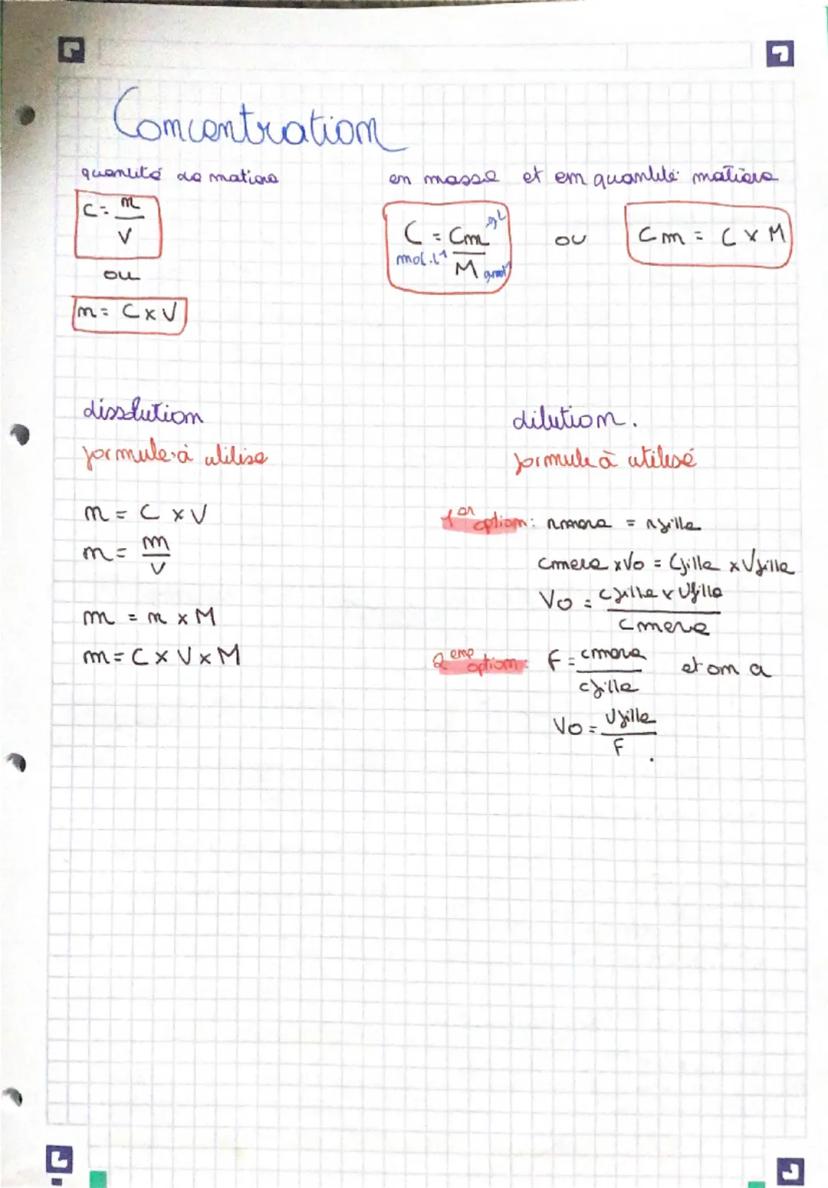 Concentration
quantité de matière
C = n/V
ou
n = C x V
en masse et en quantité matière
C = Cm/M
mol.L⁻¹
g.L
g.mol⁻¹
ou
Cm = C x M
dissolution
formule à utilise
n = C x V
n = m/V
m = n x M
m = C x V x M
dilution.
formule à utilisé
1er option: nmere = nfille
Cmere x Vo = Cfille x Vfille
Vo = Cfille x Vfille / Cmere
2eme option: F = cmere/cfille et on a
Vo = Vfille/F.